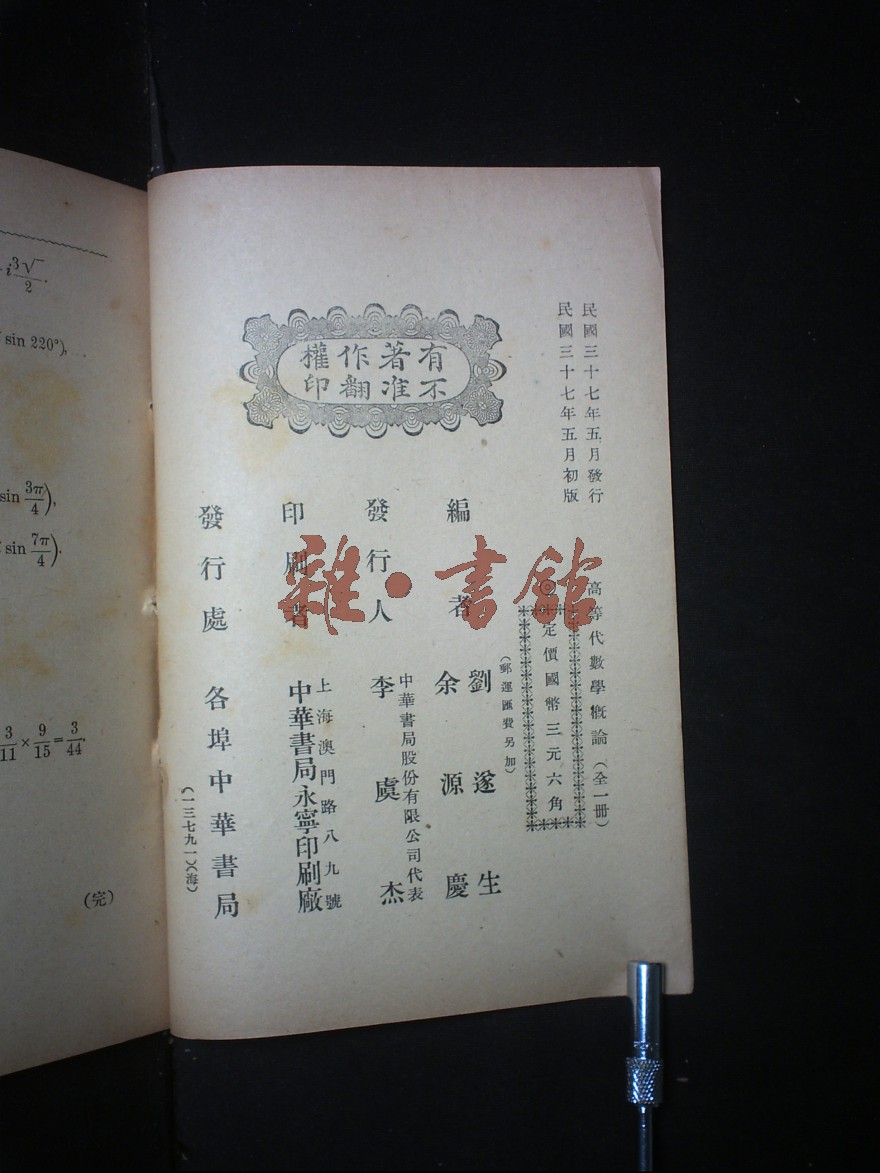 民國三十七年五月發行
民國三十七年五月初版
高等代數學概論(全一冊)
◎定價國幣三元六角
(郵運匯費另加)
有著作權
不准翻印
編者
劉遂生
余源慶
發行人
中華書局股份有限公司代表
李虞杰
印刷者
上海澳門路八九號
中華書局永寧印刷廠
發行處
各埠中華書局
(一三七九一)(海)
雜·書館
sin 220°),
sin 3π/4),
sin 7π/4).
3/11 × 9/15 = 3/44.
(完)